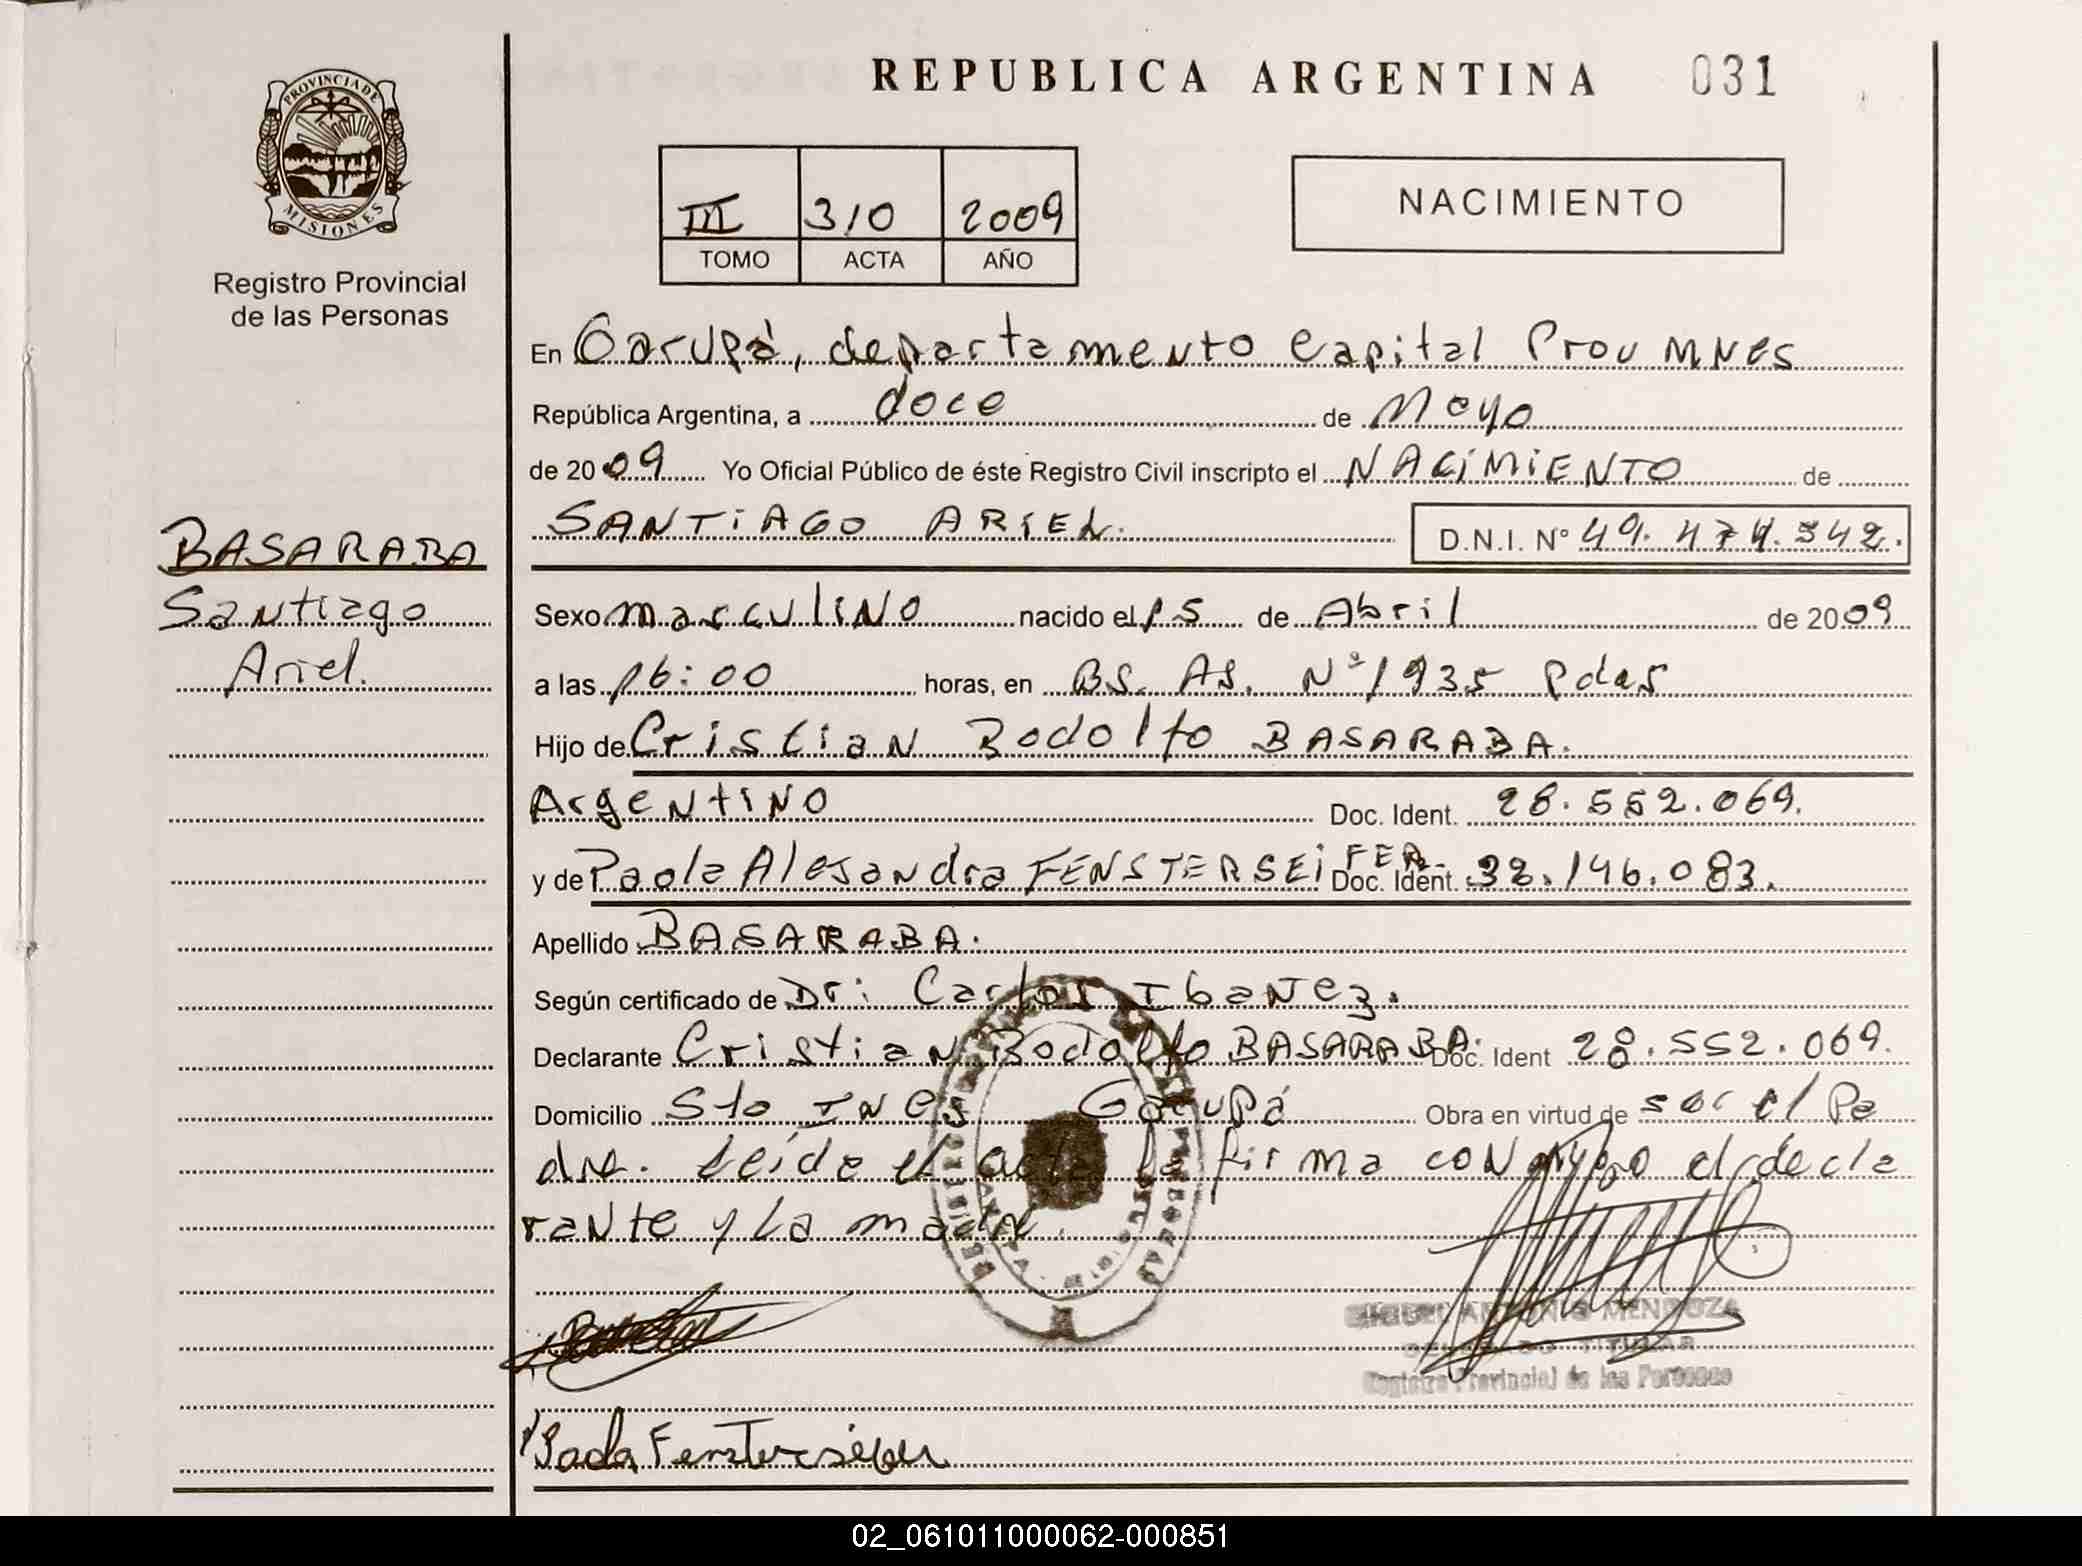 REPUBLICA ARGENTINA 031
PROVINCIA DE
MISIONES
Registro Provincial
de las Personas
III 310 2009
TOMO ACTA AÑO
NACIMIENTO
En Garupá, departamento Capital Prov MNES
República Argentina, a doce de Mayo
de 2009 Yo Oficial Público de éste Registro Civil inscripto el NACIMIENTO de
SANTIAGO ARIEL. D.N.I. Nº 49.474.342.
BASARABA
Santiago
Ariel.
Sexo masculino nacido el 15 de Abril de 2009
a las 16:00 horas, en BS. AS. Nº 1935 Pdas
Hijo de Cristian Rodolfo BASARABA.
Argentino Doc. Ident. 28.552.069.
y de Paola Alejandra FENSTERSEIFER Doc. Ident. 32.146.083.
Apellido BASARABA.
Según certificado de Dr: Carlos Ibañez.
Declarante Cristian Rodolfo BASARABA. Doc. Ident 28.552.069.
Domicilio Sta INES Garupá Obra en virtud de ser el Pa
dre. Leída el acta la firma conmigo el decla
rante y La madre.
MIGUEL ANTONIO MENDOZA
DELEGADO TITULAR
Registro Provincial de las Personas
Paola Fensterseifer
02_061011000062-000851